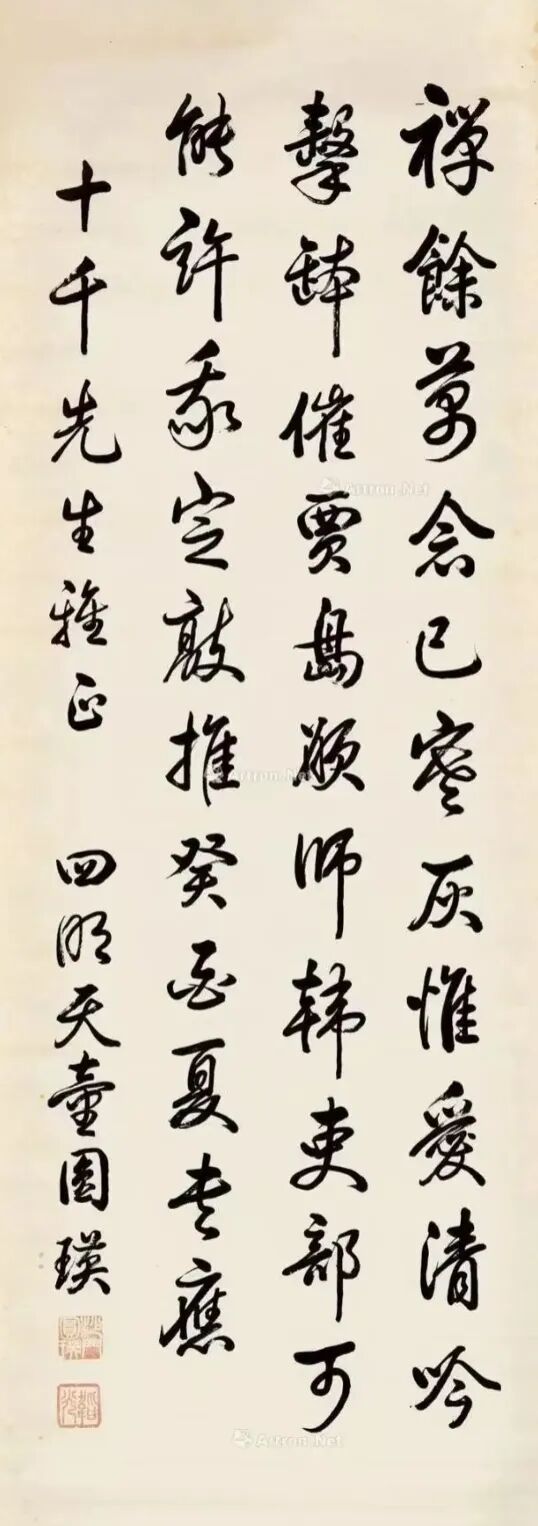 禅餘萬念已寒灰惟愛清吟
擊鉢催賈島願師韓吏部可
能許我定敲推癸酉夏書應
十千先生雅正
四明天童圓瑛
Artron.Net
Artron.Net
Artron.Net